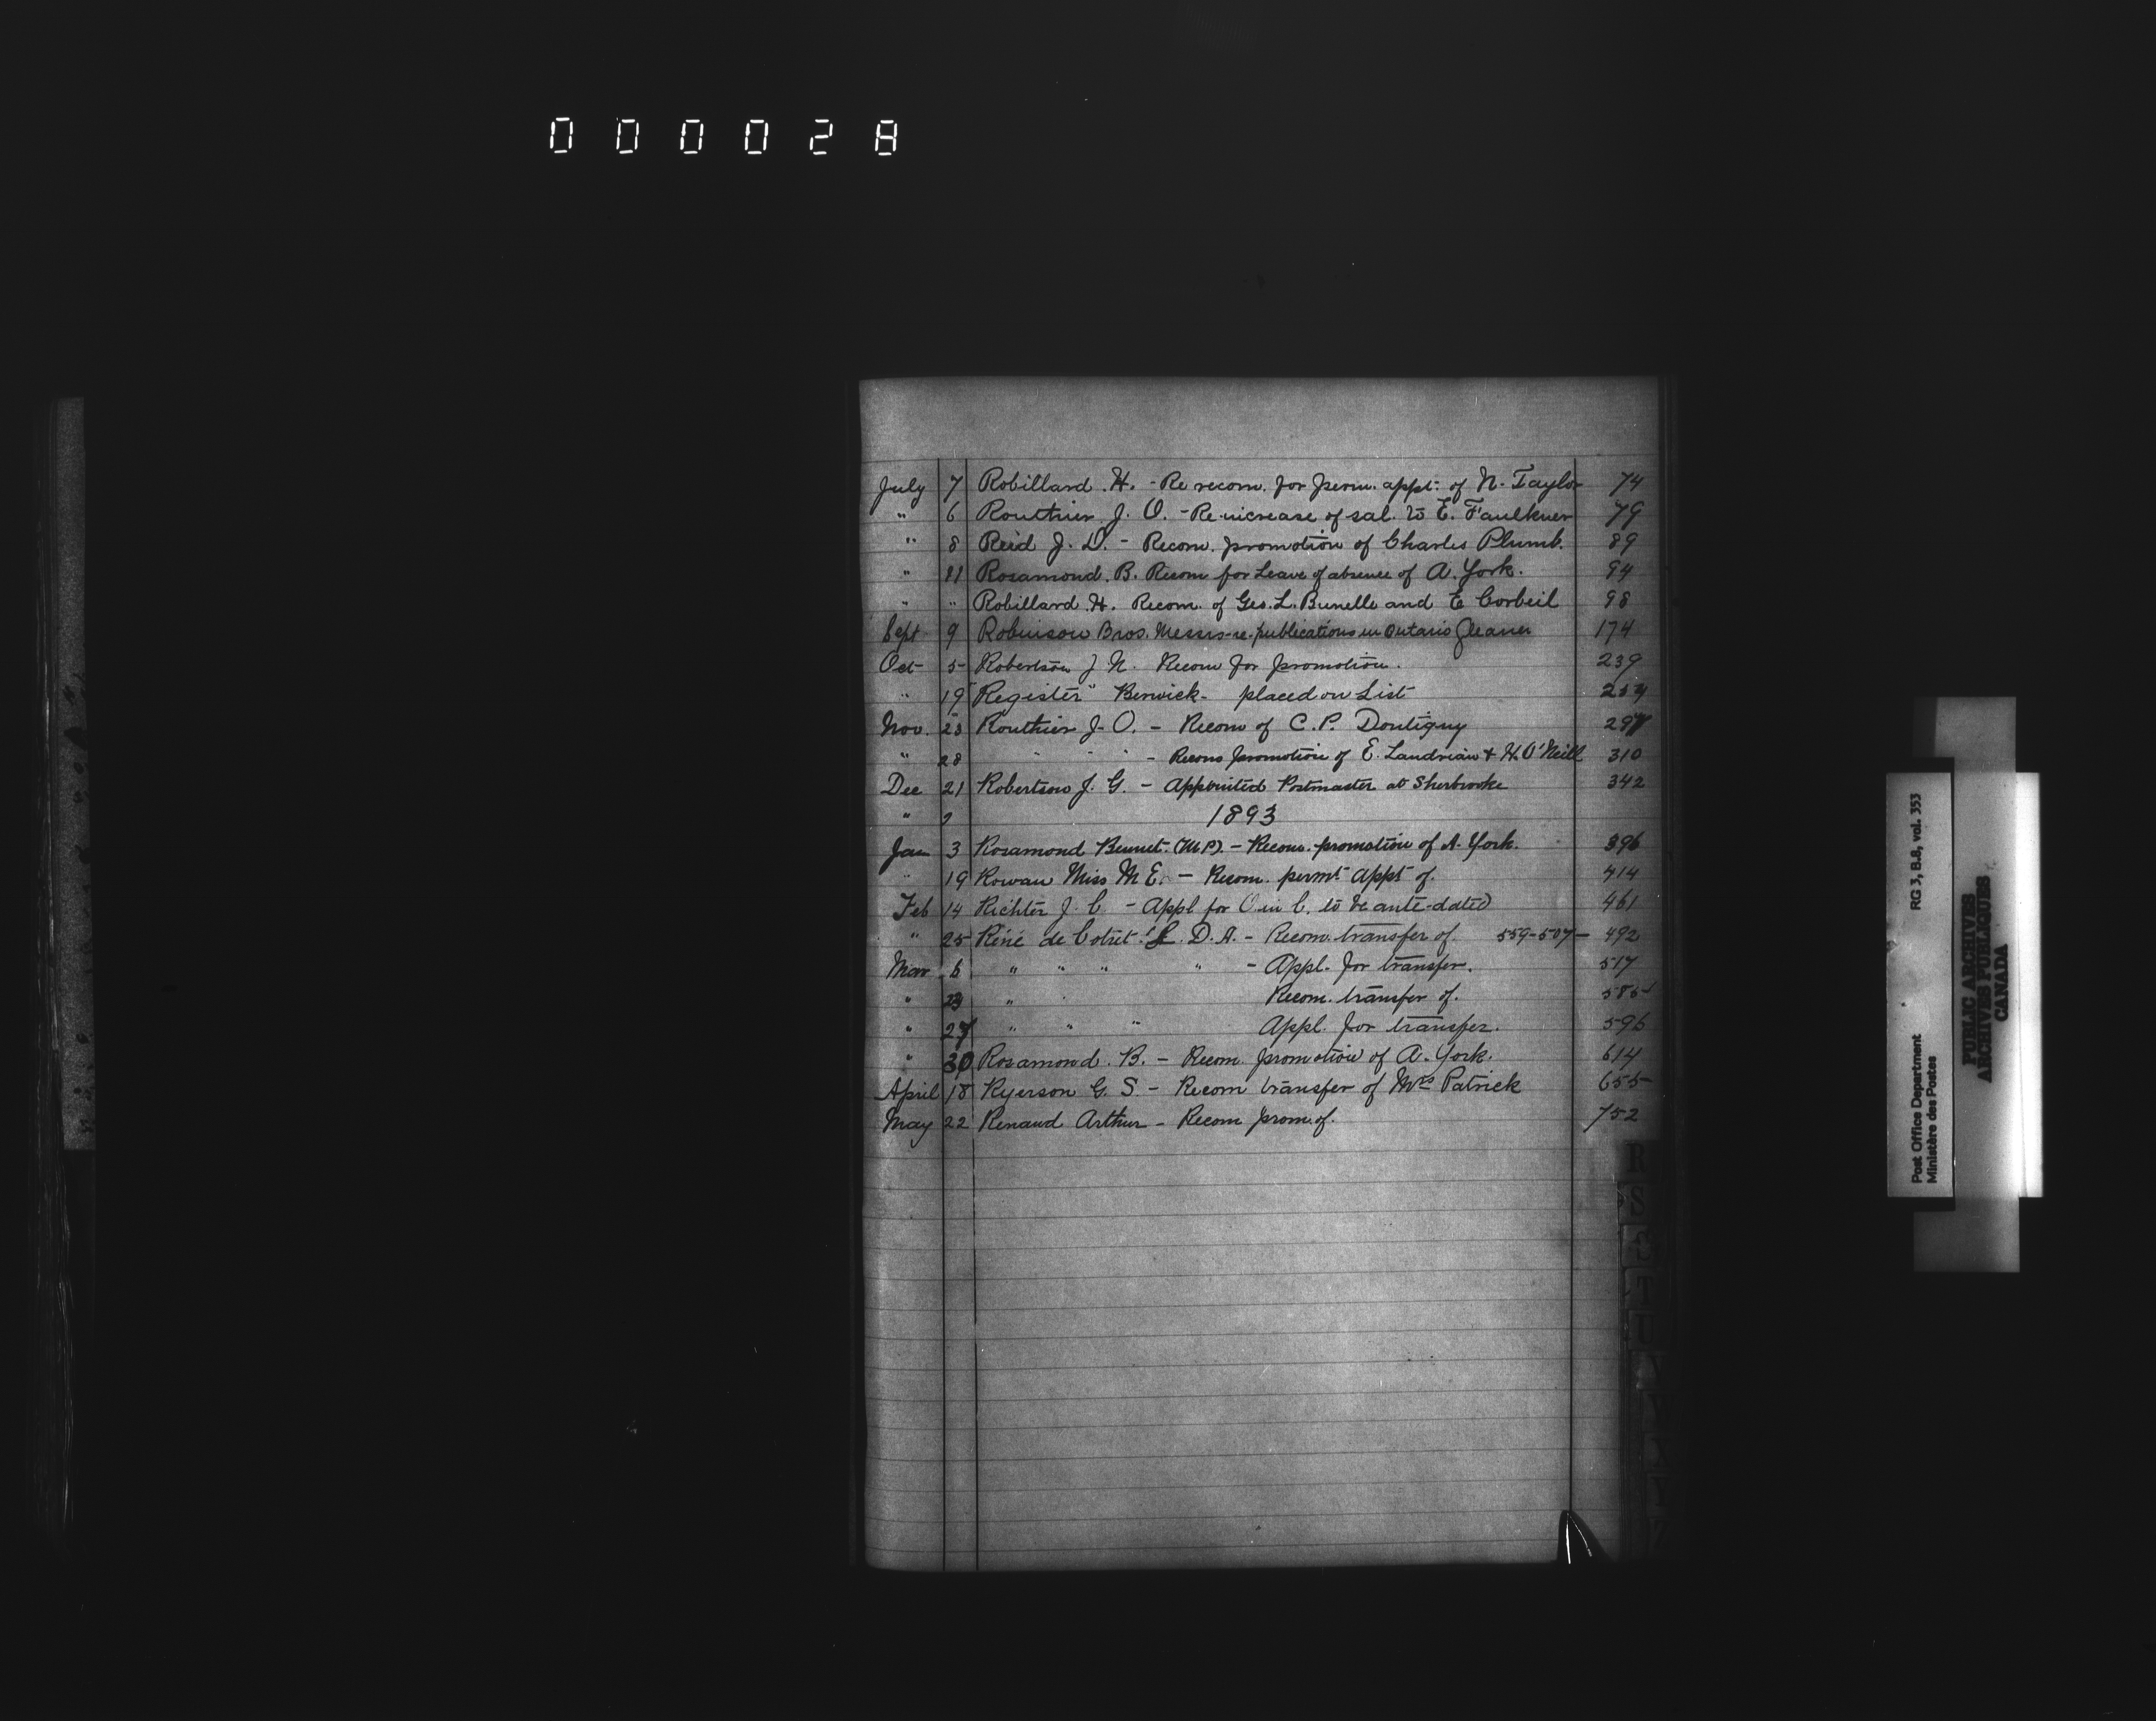 000028
July 7 Robillard. H. - Re recom. for perm. appt. of N. Taylor 74
" 6 Routhier J. O. - Re increase of sal. to E. Faulkner 79
" 8 Reid J. D. - Recom. promotion of Charles Plumb. 89
" 11 Rosamond. B. Recom for Leave of absence of A. York. 94
" " Robillard H. Recom. of Geo. L. Brunelle and E Corbeil 98
Sept 9 Robinson Bros. Messrs - re - publications in Ontario Gleaner 174
Oct 5 Robertson J N. Recom for promotion. 239
" 19 "Register" Berwick - placed on List
Nov. 23 Routhier J. O. - Recom of C. P. Dontigny 297
" 28 " " " - Recom promotion of E. Landriau & H. O'Neill 310
Dec 21 Robertson J. G. - Appointed Postmaster at Sherbrooke 342
" 1893
Jan 3 Rosamond Bennet. (M.P.). - Recom. promotion of A. York. 396
" 19 Rowan Miss M E. - Recom. permt appt of. 414
Feb 14 Richter J. C. - Appl for O in C. to be ante-dated 461
" 25 Réné de Cotret. L. D. A. - Recom. transfer of. 559-507- 492
Mar 6 " " " " - Appl. for transfer. 517
" 23 " Recom. transfer of. 585
" 27 " " " Appl. for transfer. 596
" 30 Rosamond. B. - Recom. promotion of A. York. 614
April 18 Ryerson G. S. - Recom transfer of Mrs Patrick 655
May 22 Renaud Arthur - Recom prom. of. 752
R
S
T
Post Office Department RG 3, B.8, vol. 353
Ministère des Postes
PUBLIC ARCHIVES
ARCHIVES PUBLIQUES
CANADA